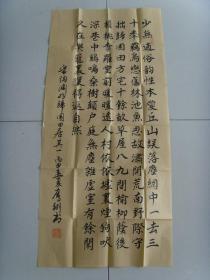 少無適俗韻性本愛丘山誤落塵網中一去三
十年羈鳥戀舊林池魚思故淵開荒南野際守
拙歸園田方宅十餘畝草屋八九間榆柳蔭後
簷桃李羅堂前曖曖遠人村依依墟里煙狗吠
深巷中雞鳴桑樹顛戶庭無塵雜虛室有餘閒
久在樊籠裏復得返自然
晉陶淵明歸園田居其一 丙申春書